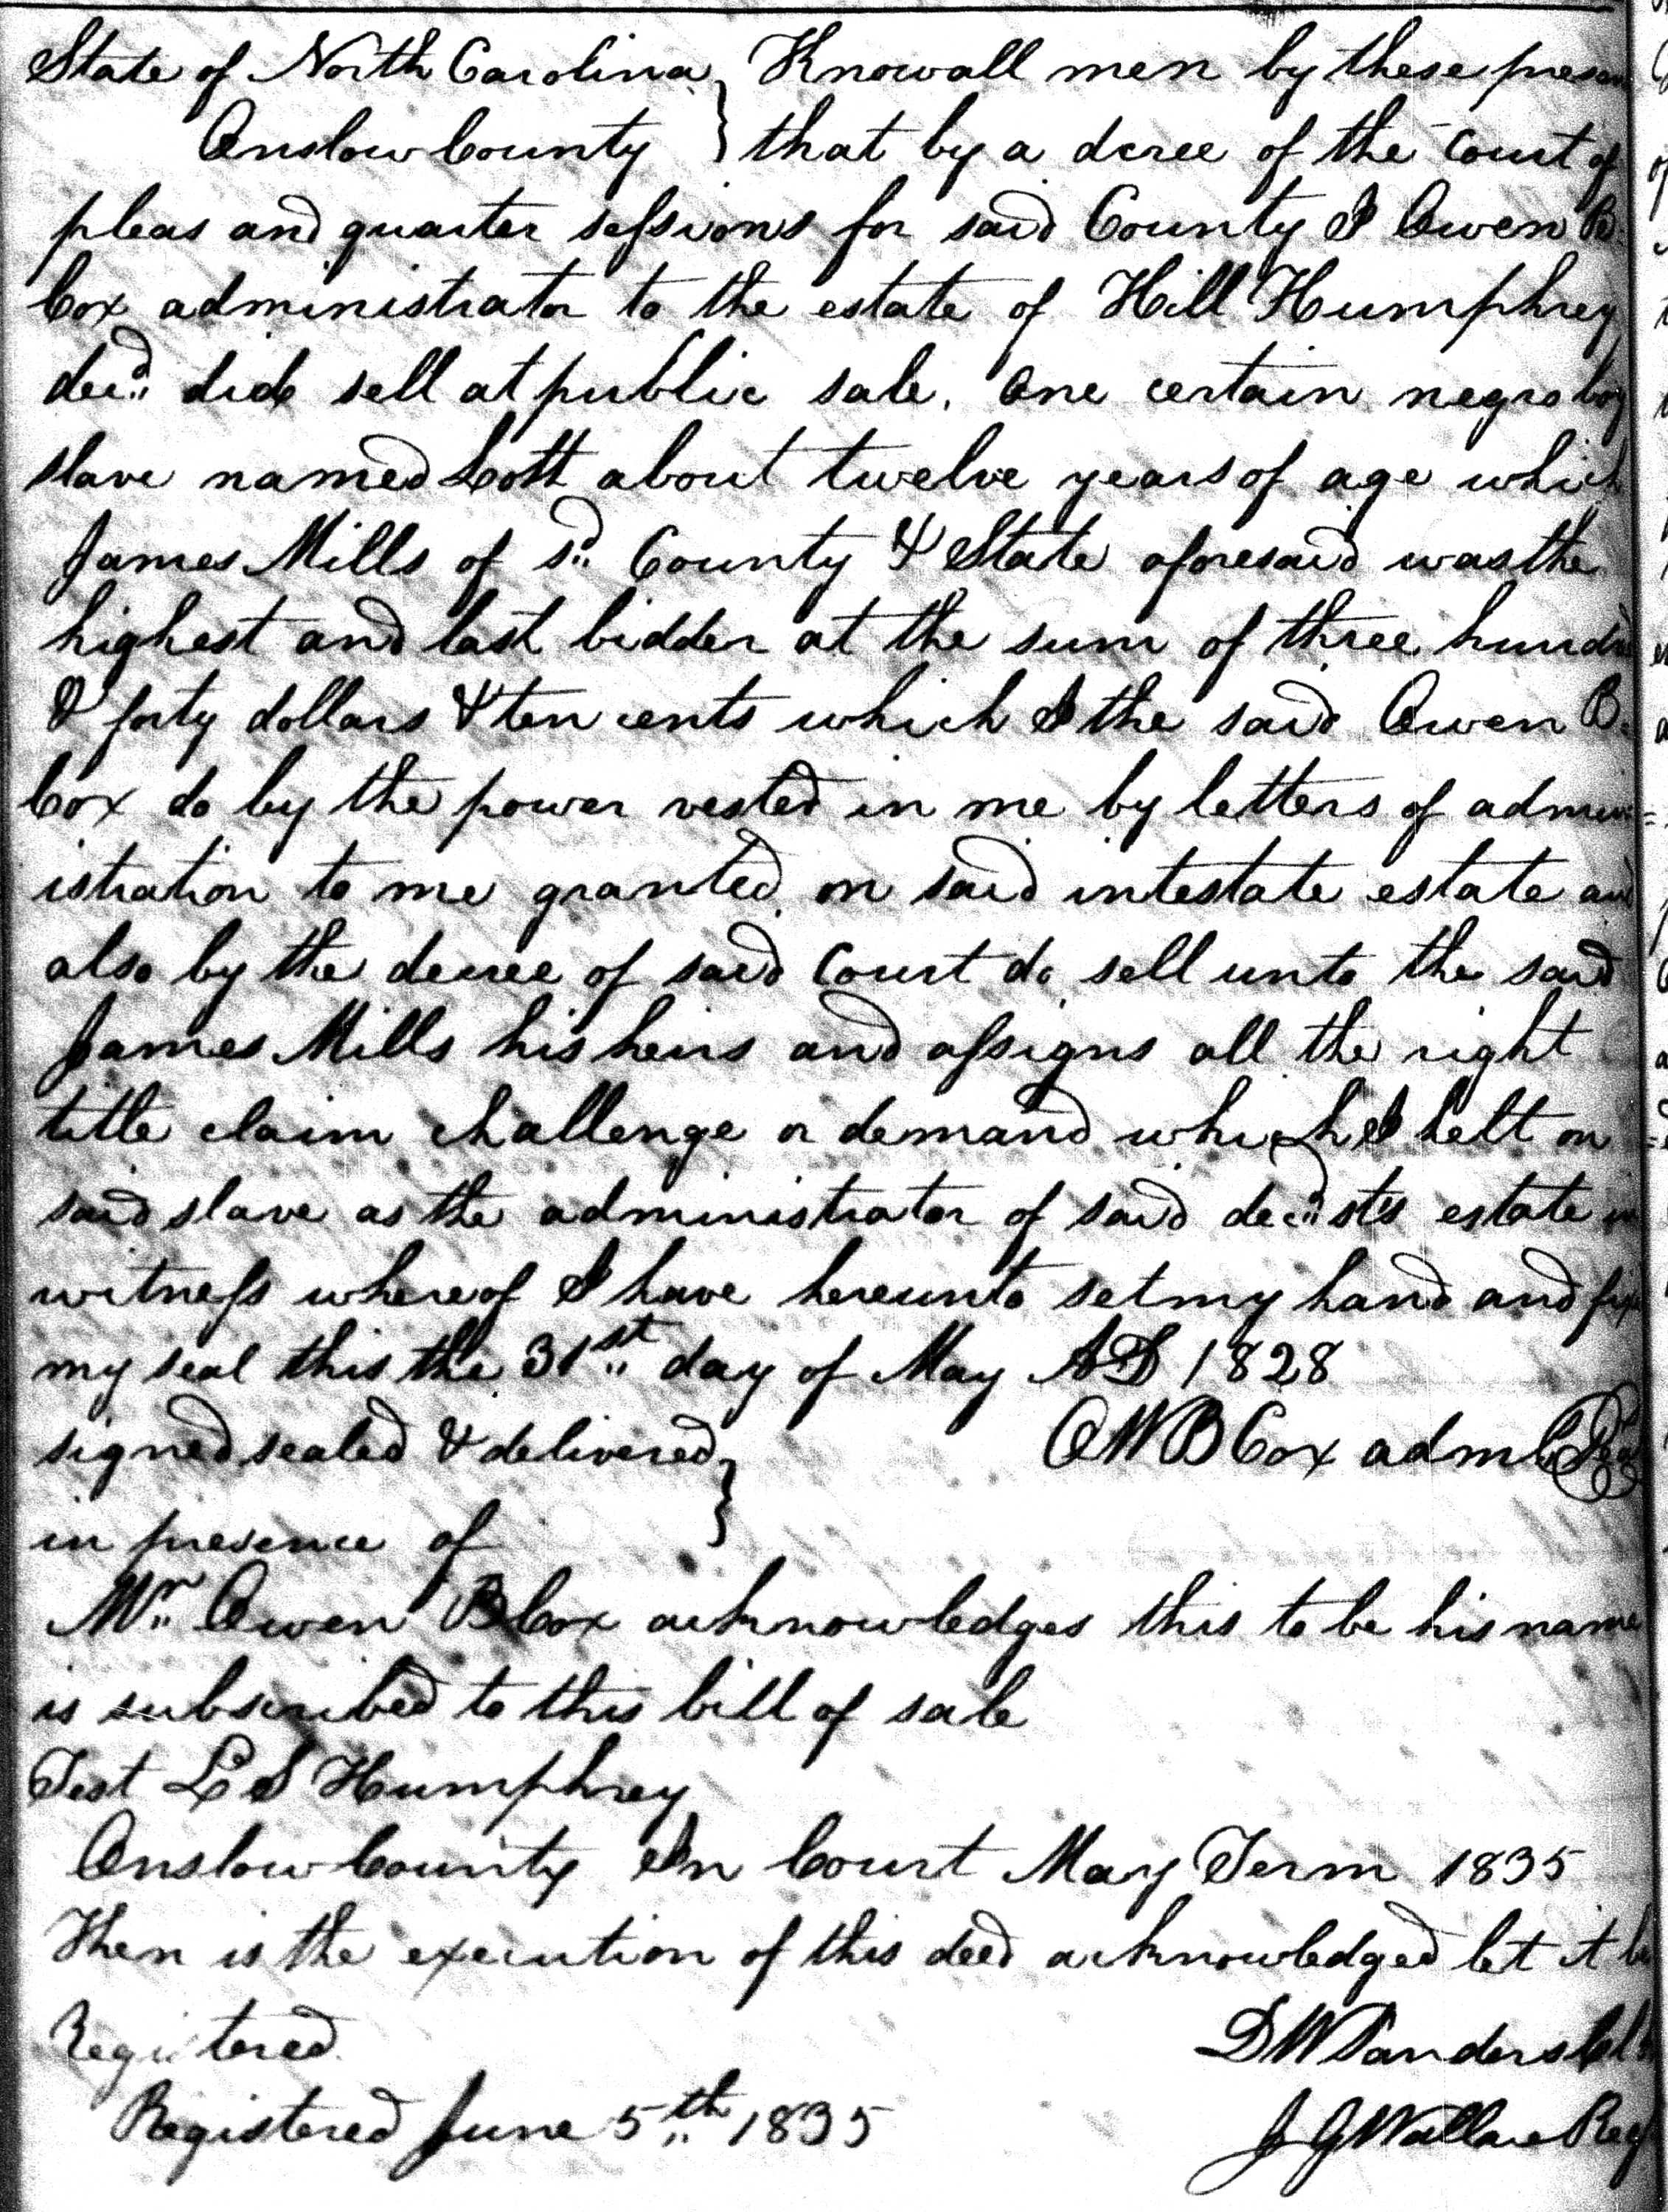 State of North Carolina } Know all men by these presen
Onslow County } that by a dcree of the Court of
pleas and quarter sessions for said County I Owen B.
Cox administrator to the estate of Hill Humphrey
decd. did sell at public sale, One certain negro boy
slave named Scott about twelve years of age which
James Mills of sd. County & State aforesaid was the
highest and last bidder at the sum of three hundred
& forty dollars & ten cents which I the said Owen B.
Cox do by the power vested in me by letters of admin=
istration to me granted on said intestate estate and
also by the decree of said Court do sell unto the said
James Mills his heirs and assigns all the right
title claim challenge or demand which I helt on
said slave as the administrator of said decdsts estate in
witness whereof I have hereunto set my hand and fix
my seal this the 31st day of May AD 1828
signed sealed & delivered } OWB Cox adm Seal
in presence of
Mr. Owen B Cox acknowledges this to be his name
is subscribed to this bill of sale
Test L S Humphrey
Onslow County In Court May Term 1835
Then is the execution of this deed acknowledged let it be
Registered D W Sanders Clk
Registered June 5th 1835 J G Wallace Reg